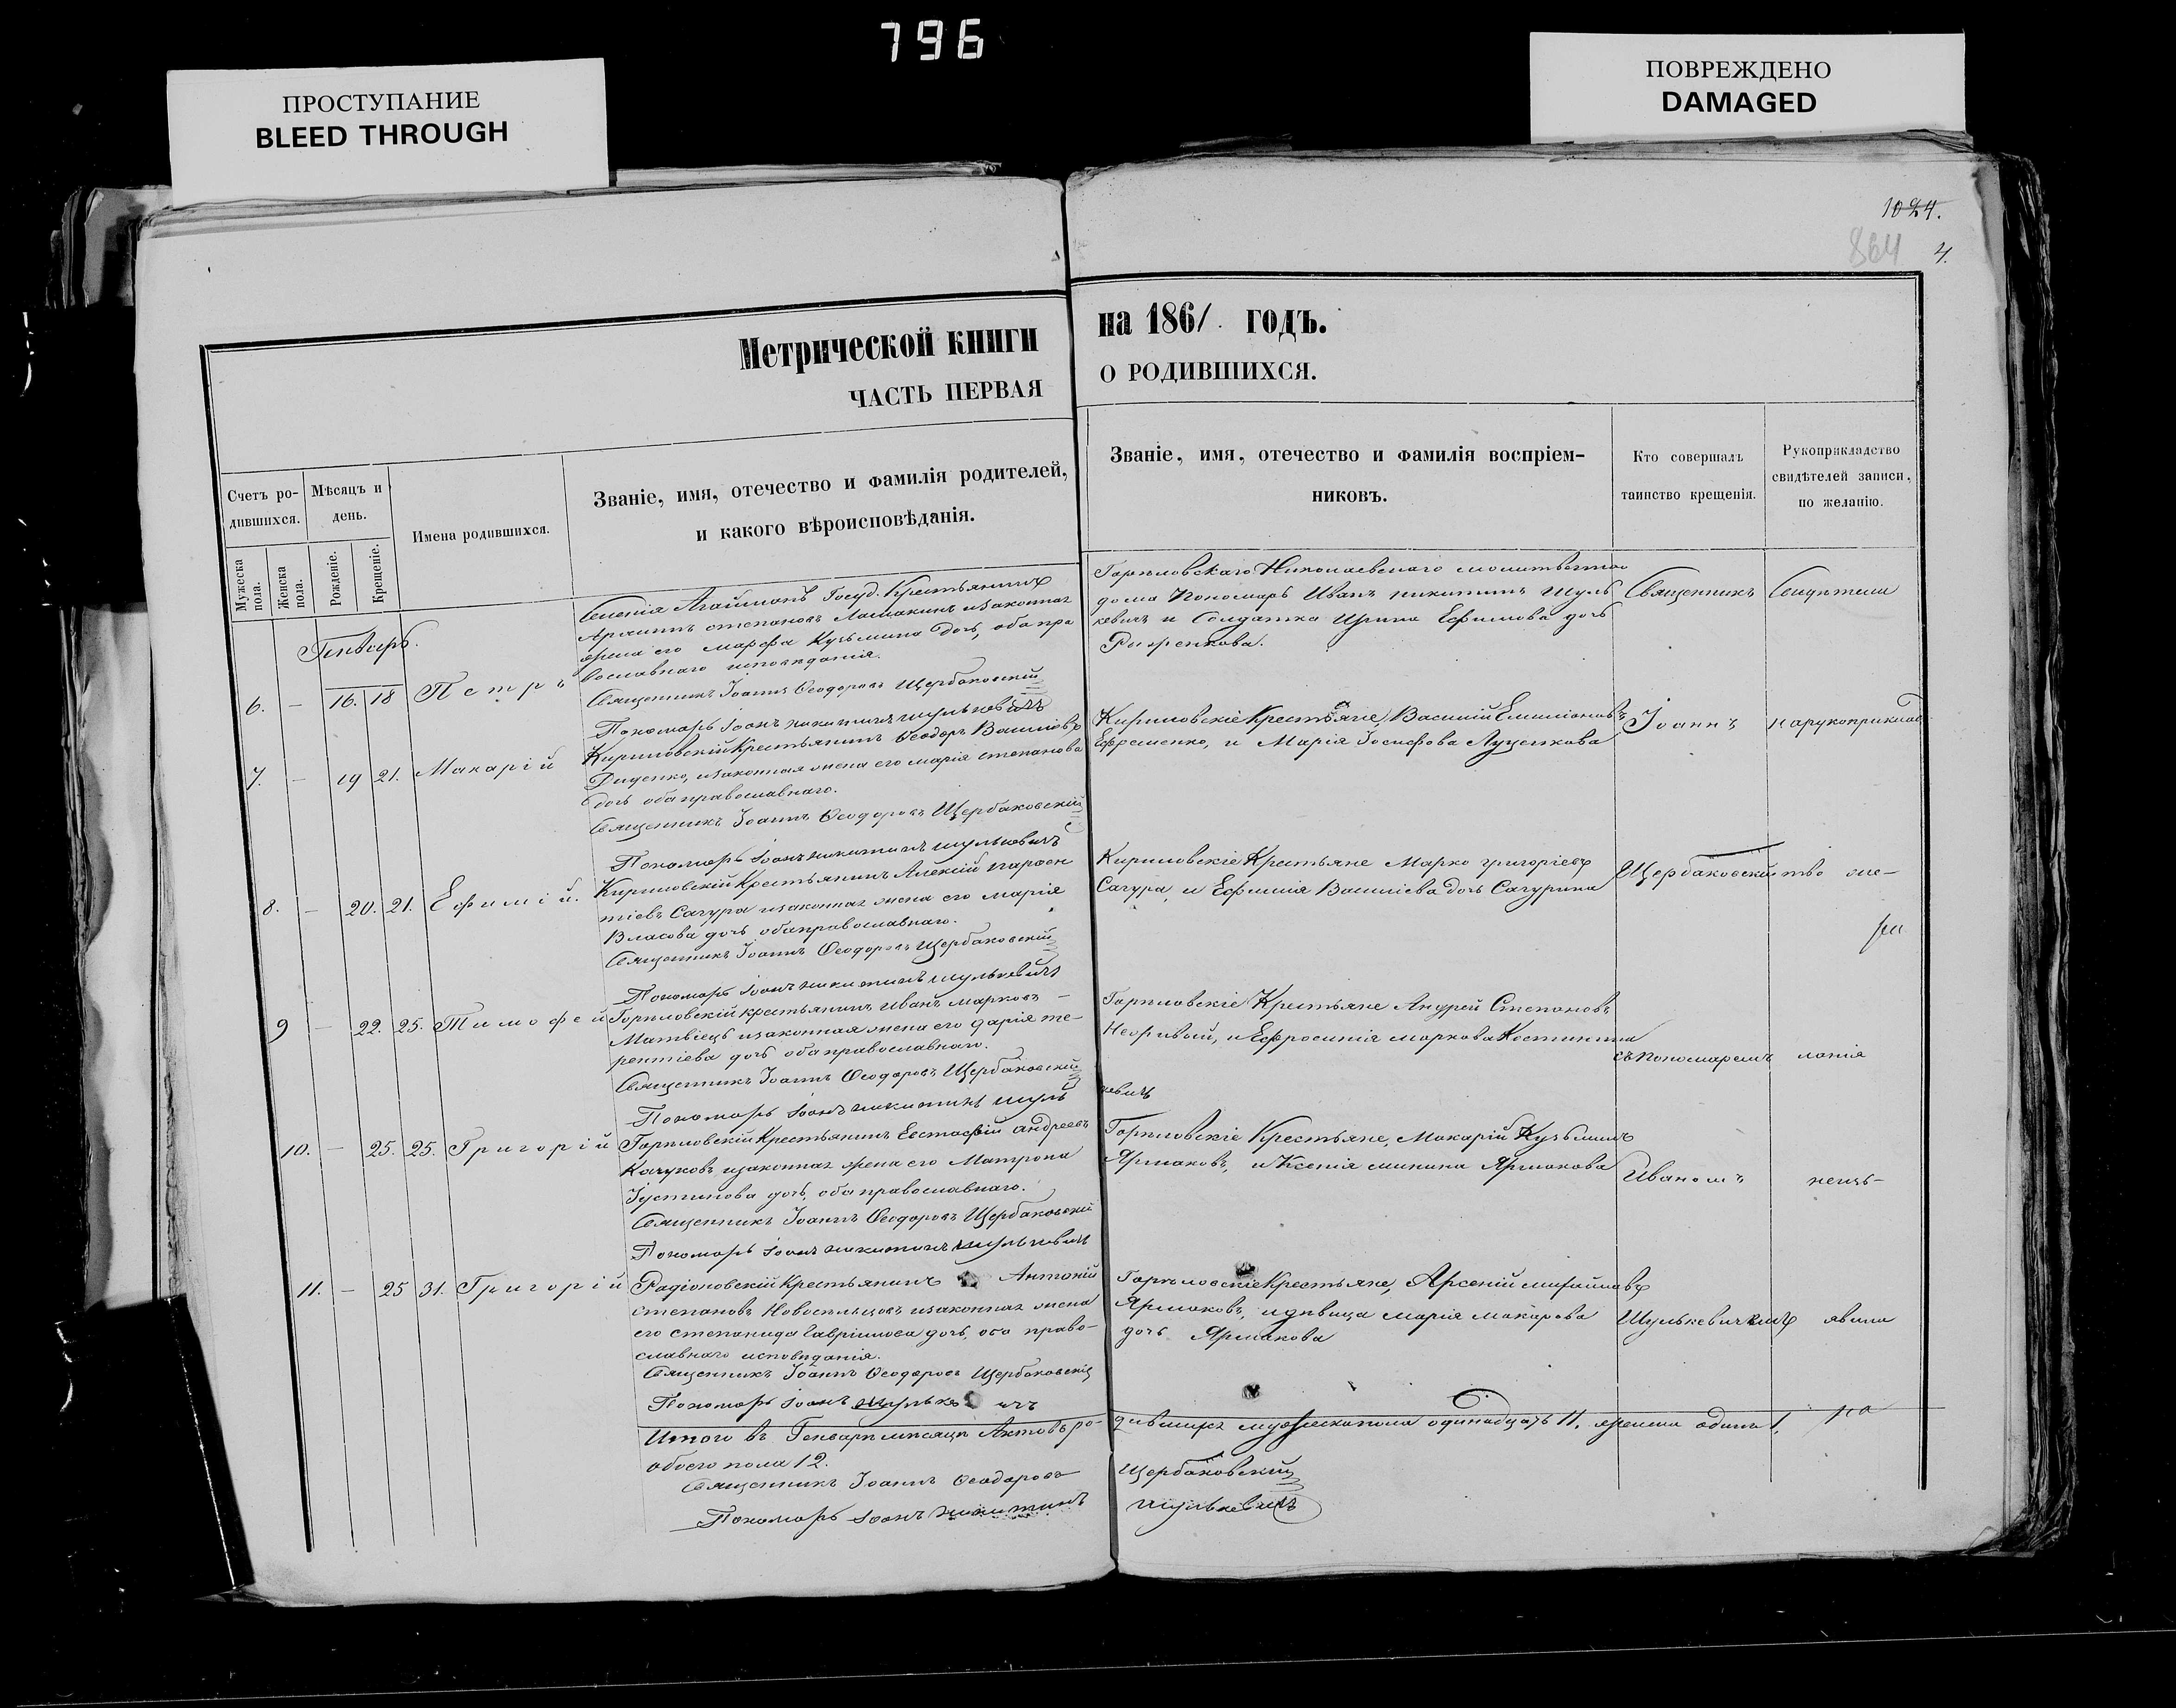 796
ПРОСТУПАНИЕ
BLEED THROUGH
ПОВРЕЖДЕНО
DAMAGED
1024.
864 4.
Метрической книги на 1861. годъ.
ЧАСТЬ ПЕРВАЯ О РОДИВШИХСЯ.
Счетъ ро-
дившихся.
Мужеска
пола.
Женска
пола.
Мѣсяцъ и
день.
Рожденіе.
Крещеніе.
Имена родившихся.
Званіе, имя, отечество и фамилія родителей,
и какого вѣроисповѣданія.
Званіе, имя, отечество и фамилія воспріем-
никовъ.
Кто совершалъ
таинство крещенія.
Рукоприкладство
свидѣтелей записи,
по желанію.
Генварь.
6. — 16. 18 Петръ
Селенія Агаймонъ Госуд. Крестьянинъ
степановъ изаконная
жена его марѳа Кузьмина дочь, оба пра
вославнаго исповѣданія.
Священникъ Іоаннъ Ѳеодоровъ Щербаковскій
Пономарь Іоанъ никитинъ шулькевичъ
Горновскаго Николаевскаго молитвеннаго
дома Пономарь Иванъ никитинъ Шуль
кевичъ и Солдатка Ирина Ефимова дочь
7. — 19 21. Макарій
Кириловскій Крестьянинъ Ѳеодоръ Василіевъ
Диденко, изаконная жена его марія степанова
дочь оба православнаго.
Священникъ Іоаннъ Ѳеодоровъ Щербаковскій
Пономарь Іоанъ никитинъ шулькевичъ
Кириловскіе Крестьяне, Василій Емиліоновъ
Ефременко, и Марія Іосифова Луценкова
8. — 20. 21. Ефимій.
Кириловскій Крестьянинъ Алексій парѳен
тіевъ Сачура изаконная жена его марія
Власова дочь оба православнаго.
Священникъ Іоаннъ Ѳеодоровъ Щербаковскій
Пономарь Іоанъ никитинъ шулькевичъ
Кириловскіе Крестьяне Марко григоріевъ
Сачура, и Ефимія Василіева дочь Сачурина
9 — 22. 25. Тимофей
Горновскій крестьянинъ иванъ марковъ —
Матвіецъ изаконная жена его дарія те-
рентіева дочь оба православнаго.
Священникъ Іоаннъ Ѳеодоровъ Щербаковскій
Пономарь Іоанъ никитинъ шуль кевичъ
Горновскіе Крестьяне Андрей Степановъ
и Ефросинія маркова
10. — 25. 25. Григорій
Горновскій Крестьянинъ Евстафій андреевъ
Качуковъ изаконная жена его Матрона
Іустинова дочь, оба православнаго.
Священникъ Іоаннъ Ѳеодоровъ Щербаковскій
Пономарь Іоанъ никитинъ шулькевичъ
Горновскіе Крестьяне, Макарій Кузьминъ
Ярмаковъ, и Ксенія минина Ярмакова
11. — 25 31. Григорій
Радіоновскій Крестьянинъ Антоній
степановъ Новосельцовъ изаконная жена
его степанида Гавріилова дочь, оба право-
славнаго исповѣданія.
Священникъ Іоаннъ Ѳеодоровъ Щербаковскій
Пономарь Іоанъ шульке ичъ
Горновскіе Крестьяне, Арсеній михайловъ
Ярмаковъ, идѣвица марія макарова
дочь Ярмакова
Священникъ
Іоаннъ
Щербаковскій
съ Пономаремъ
Иваномъ
Шулькевичемъ
Свидѣтели


нарукоприклад
ство же-
лапія
неизъ-
явили
Итого въ Генварѣ мѣсяцѣ Актовъ ро- дившихъ мужеска пола одинадцать 11, женска одинъ 1,
обоего пола 12.
Священникъ Іоаннъ Ѳеодоровъ Щербаковскій
Пономарь Іоанъ никитинъ шулькевичъ